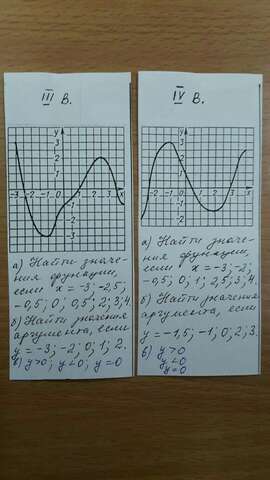 III В.
y
3
2
1
-3 -2 -1 0 1 2 3 x
-2
-3
а) Найти значе-
ния функции,
если x = -3; -2,5;
-0,5; 0; 0,5; 2; 3; 4.
б) Найти значения
аргумента, если
y = -3; -2; 0; 1; 2.
в) y>0; y<0; y=0
IV В.
y
3
2
1
-3 -2 -1 0 1 2 3 x
-2
а) Найти значе-
ния функции,
если x = -3; -2;
-0,5; 0; 1; 2,5; 3; 4.
б) Найти значения
аргумента, если
y = -1,5; -1; 0; 2; 3.
в) y>0
y<0
y=0